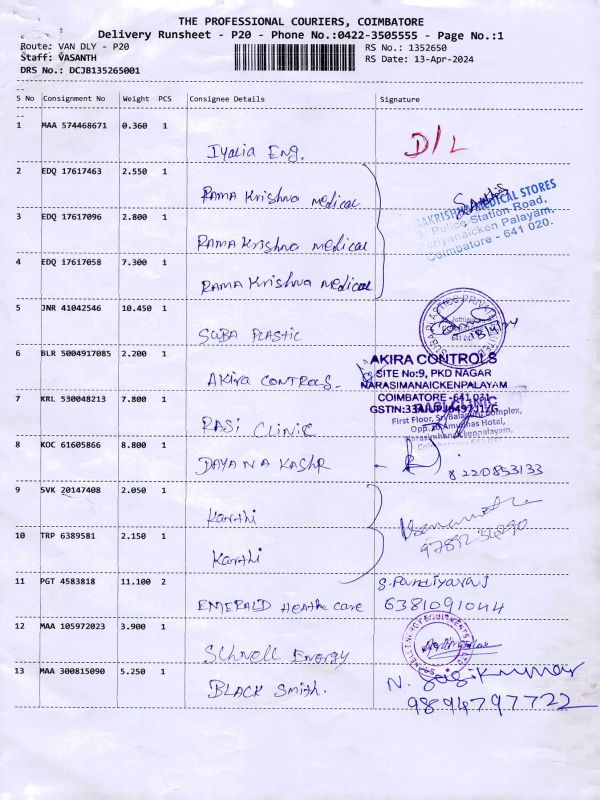 THE PROFESSIONAL COURIERS, COIMBATORE
Delivery Runsheet - P20 - Phone No.:0422-3505555 - Page No.:1
Route: VAN DLY - P20 RS No.: 1352650
Staff: VASANTH RS Date: 13-Apr-2024
DRS No.: DCJB135265001
S No Consignment No Weight PCS Consignee Details Signature
1 MAA 574468671 0.360 1
Iyalia Eng. D/L
2 EDQ 17617463 2.550 1
Rama Krishna medical
MEDICAL STORES
Police Station Road,
3 EDQ 17617096 2.800 1
Periyanaicken Palayam,
Rama Krishna medical
Coimbatore - 641 020.
4 EDQ 17617058 7.300 1
Rama Krishna medical
5 JNR 41042546 10.450 1
SUBA Plastic
6 BLR 5004917085 2.200 1
AKIRA CONTROLS
SITE No:9, PKD NAGAR
Akira CONTROLS.
NARASIMANAICKENPALAYAM
7 KRL 530048213 7.800 1
COIMBATORE -641 031
RASI CLINIC
First Floor,
RASI CLINIC
8 KOC 61605866 8.800 1
DAYANA KASHR
8220853133
9 SVK 20147408 2.050 1
Karthi
10 TRP 6389581 2.150 1
Karthi
11 PGT 4583818 11.100 2
S.Pandiyaraj
EMERALD Heath care 6381091044
12 MAA 105972023 3.900 1
Schnell Energy
13 MAA 300815090 5.250 1
BLACK Smith.
N. Sasikumar
9894797722